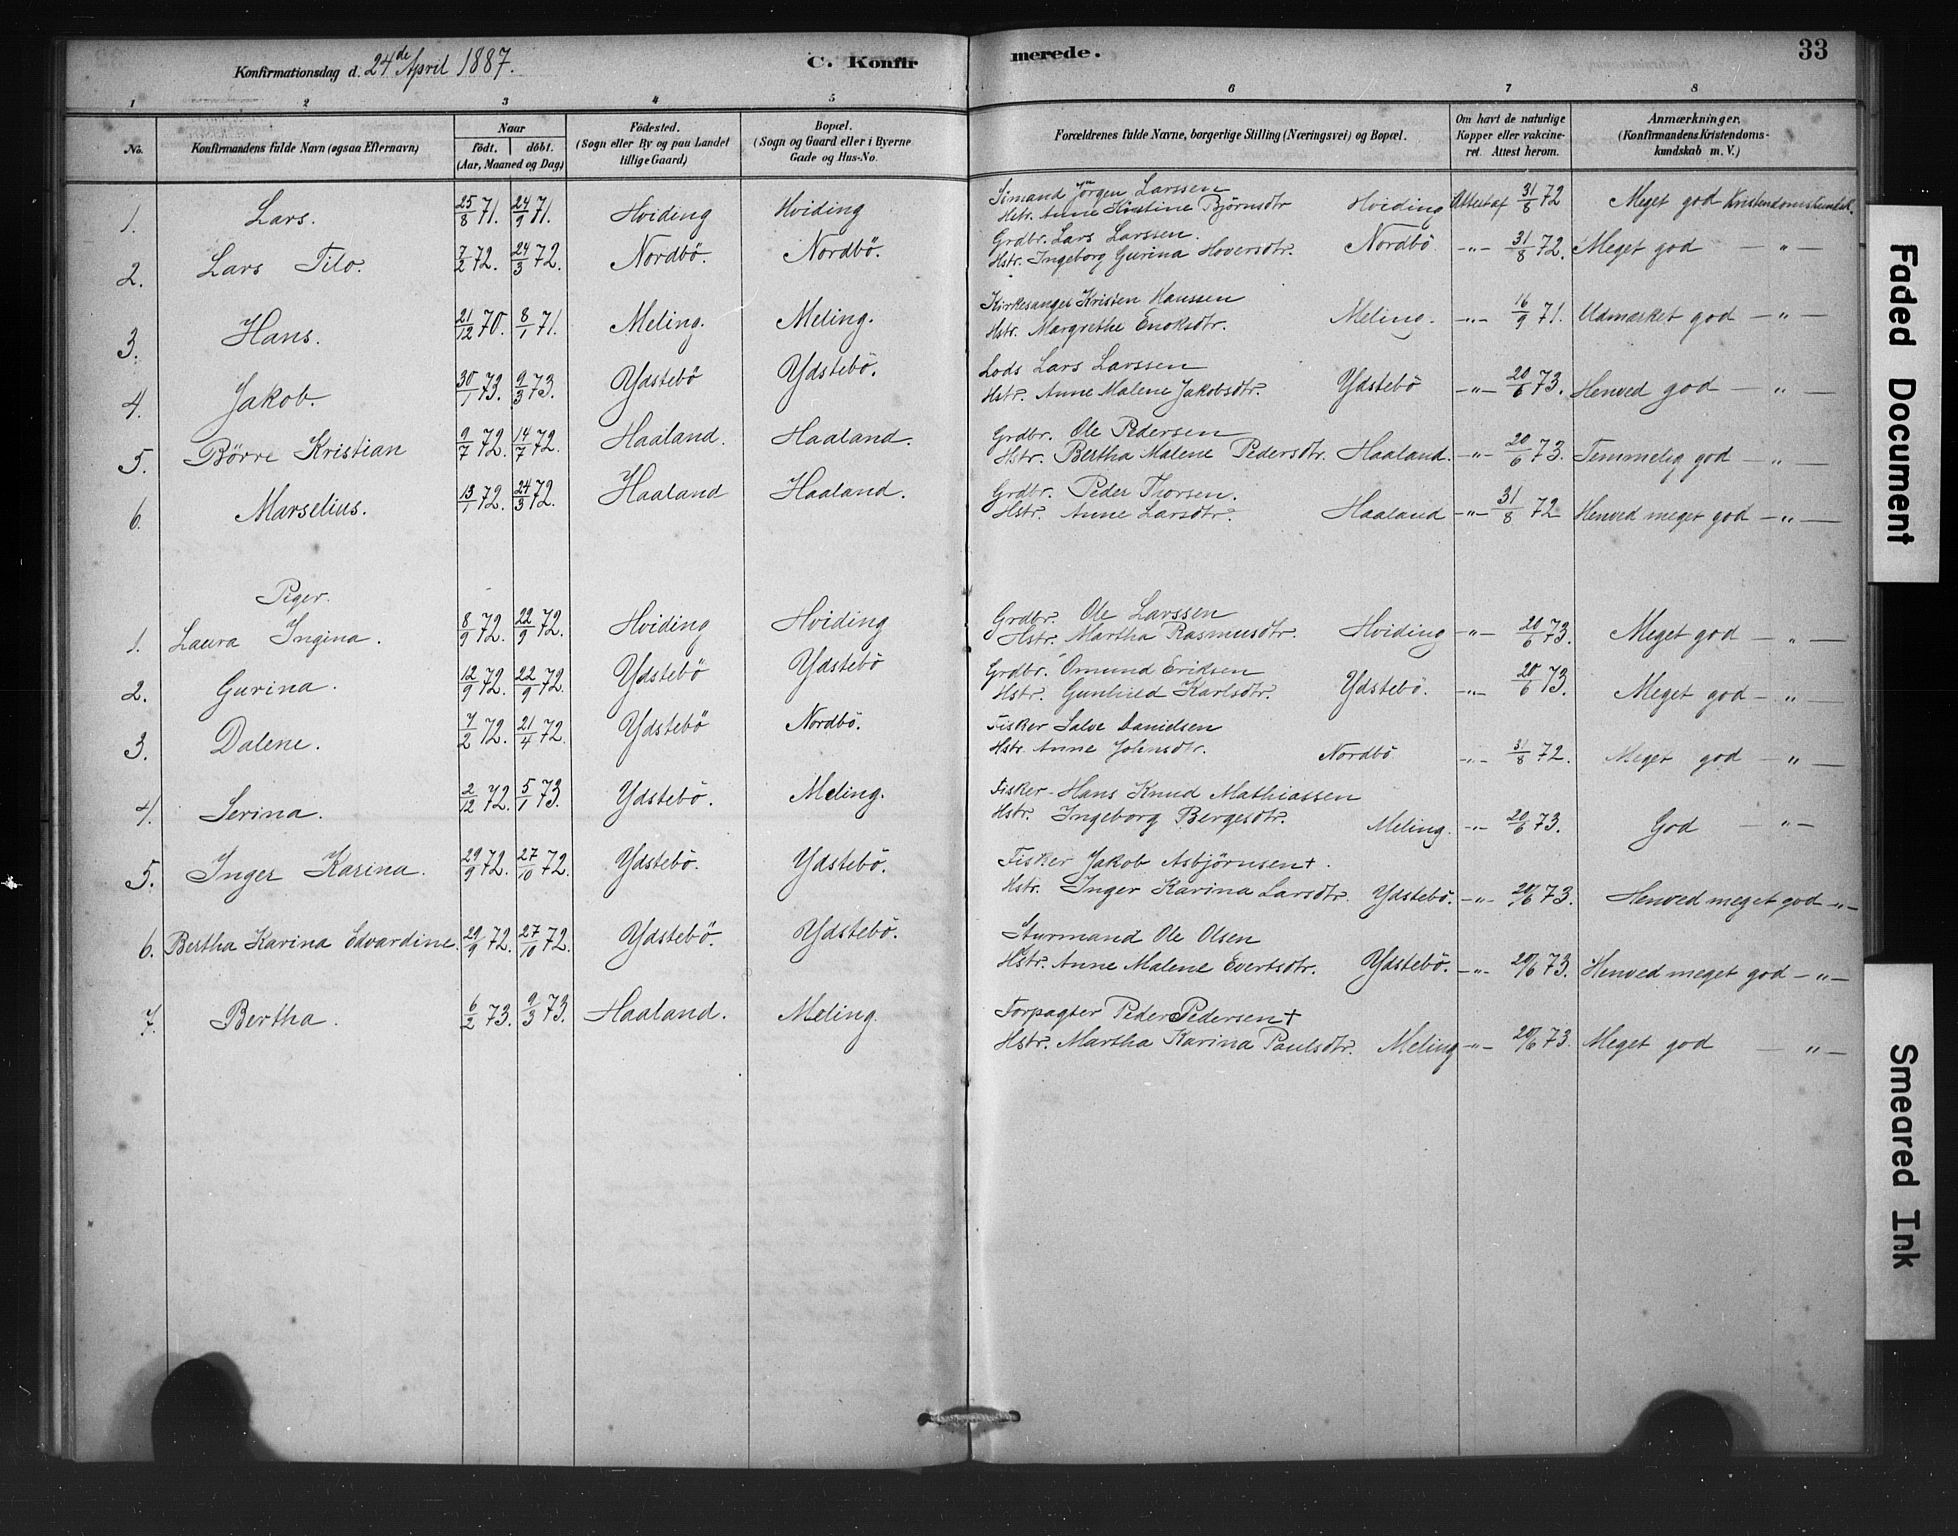 Konfirmationsdag d. 24de April 1887.
C. Konfirmerede.
33
1 2 3 4 5 6 7 8
No.
Konfirmandens fulde Navn (ogsaa Efternavn)
Naar
födt. döbt.
(Aar, Maaned og Dag)
Födested.
(Sogn eller By og paa Landet
tillige Gaard)
Bopæl.
(Sogn og Gaard eller i Byerne
Gade og Hus-No.
Forældrenes fulde Navne, borgerlige Stilling (Næringsvei) og Bopæl.
Om havt de naturlige
Kopper eller vakcine-
ret. Attest herom.
Anmærkninger.
(Konfirmandens Kristendoms-
kundskab m. V.)
1. Lars. 25/8 71. 24/9 71. Hviding Hviding Sömand Jörgen Larssen
Hstr. Anne Kristine Björnsdtr Hviding Attest af 31/8 72 Meget god Kristendomskundsk.
2. Lars Tilo. 7/2 72. 24/3 72. Nordbö. Nordbö. Grdbr. Lars Larssen.
Hstr. Ingeborg Gurina Hoversdtr. Nordbö. -"- 31/8 72. Meget god — " —
3. Hans. 21/12 70. 8/1 71. Meling. Meling. Kirkesanger Kristen Hanssen
Hstr. Margrethe Enoksdtr. Meling. -"- 16/9 71. Udmærket god — " —
4. Jakob. 30/1 73. 9/3 73. Ydstebö Ydstebö. Lods Lars Larssen
Hstr. Anne Malene Jakobsdtr. Ydstebö -"- 20/6 73. Henved god — " —
5. Börre Kristian 9/7 72. 14/7 72. Haaland. Haaland. Grdbr. Ole Pedersen
Hstr. Bertha Malene Pedersdtr. Haaland. -"- 20/6 73. Temmelig god — " —
6. Marselius. 13/1 72. 24/3 72. Haaland Haaland. Grdbr. Peder Thorsen.
Hstr. Anne Larsdtr. Haaland -"- 31/8 72 Henved meget god — " —
Piger.
1. Laura Ingina. 8/9 72. 22/9 72. Hviding Hviding Grdbr. Ole Larssen
Hstr. Martha Rasmusdtr. Hviding -"- 20/6 73. Meget god — " —
2. Gurina. 12/9 72. 22/9 72. Ydstebö Ydstebö Grdbr. Omund Eriksen
Hstr. Gunhild Karlsdtr. Ydstebö. -"- 20/6 73. Meget god — " —
3. Dalene. 7/2 72. 21/4 72. Ydstebö Nordbö. Fisker Salve Danielsen
Hstr. Anne Johnsdtr. Nordbö -"- 31/8 72. Meget god — " —
4. Serina. 2/12 72. 5/1 73. Ydstebö. Meling. Fisker Hans Knud Mathiassen
Hstr. Ingeborg Bergesdtr. Meling. -"- 20/6 73. God — " —
5. Inger Karina. 29/9 72. 27/10 72. Ydstebö. Ydstebö. Fisker Jakob Asbjörnsen †.
Hstr. Inger Karina Larsdtr. Ydstebö. -"- 20/6 73. Henved meget god -"-
6. Bertha Karina Edvardine. 29/9 72. 27/10 72. Ydstebö. Ydstebö. Sturmand Ole Olsen
Hstr. Anne Malene Evertsdtr. Ydstebö. -"- 20/6 73. Henved meget god -"-
7. Bertha. 6/2 73. 9/3 73. Haaland. Meling. Forpagter Peder Pedersen †
Hstr. Martha Karina Paulsdtr. Meling -"- 20/6 73. Meget god — " —
Faded Document
Smeared Ink